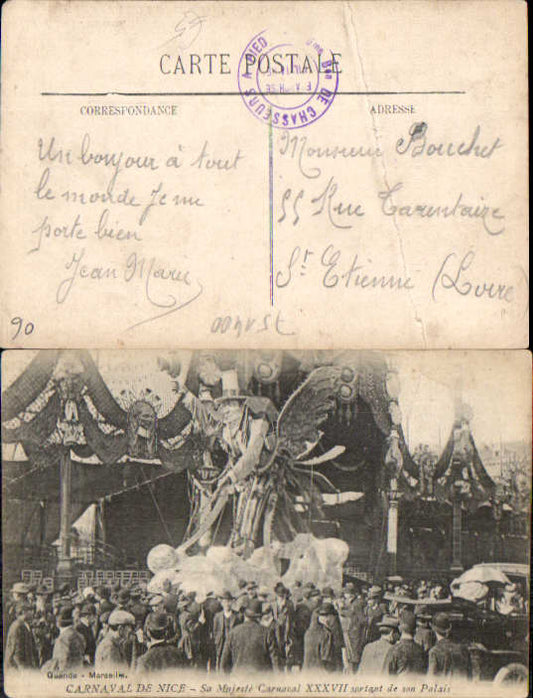 CARTE POSTALE
CORRESPONDANCE
ADRESSE
DE CHASSEURS A PIED
Un bonjour à tout
le monde Je me
porte bien
Jean Marie
Monsieur Bouchet
55 Rue Tarentaize
St Etienne (Loire)
90
Guende - Marseille
CARNAVAL DE NICE - Sa Majesté Carnaval XXXVII sortant de son Palais